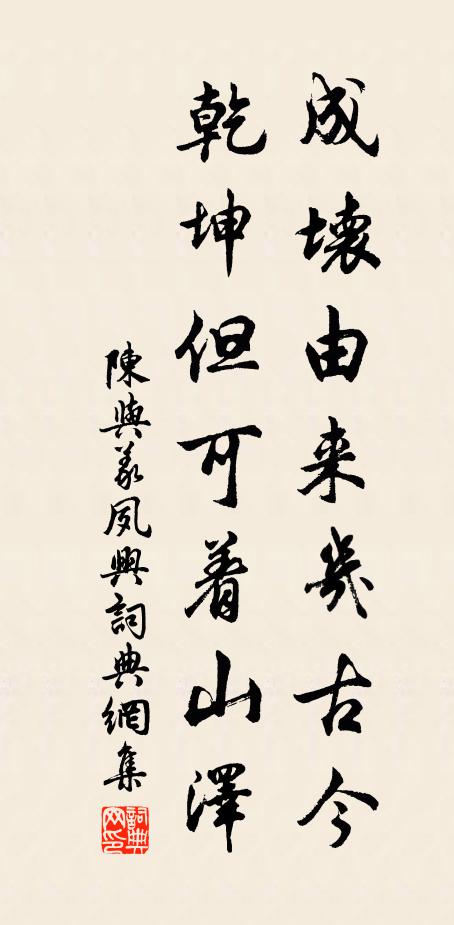 成壞由来幾古今
乾坤但可着山澤
陳與義夙興詞典網集
詞典網印